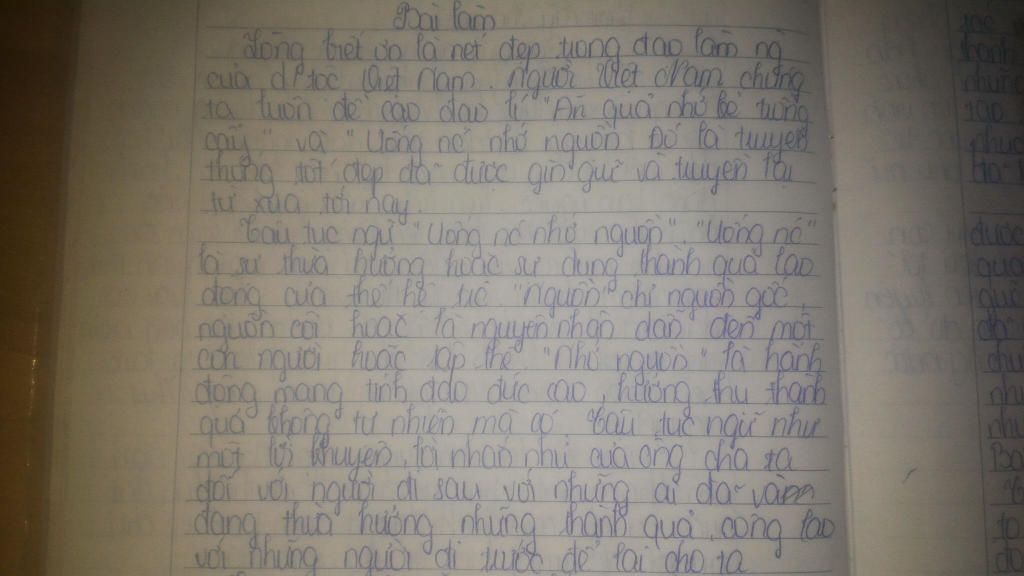 Bài làm
Lòng biết ơn là nét đẹp trong đạo làm ng
của dt tộc Việt Nam. Người Việt Nam chúng
ta luôn đề cao đạo lí "Ăn quả nhớ kẻ trồng
cây" và "Uống nc nhớ nguồn Đó là truyền
thống tốt đẹp đã được gìn giữ và truyền lại
từ xưa tới nay.
Câu tục ngữ "Uống nc nhớ nguồn" "Uống nc"
là sự thừa hưởng hoặc sử dụng thành quả lao
động của thế hệ trc "Nguồn" chỉ nguồn gốc,
nguồn cội hoặc là nguyên nhân dẫn đến một
con người hoặc tập thể "Nhớ nguồn" là hành
động mang tính đạo đức cao, hưởng thụ thành
quả không tự nhiên mà có Câu tục ngữ như
một lời khuyên, lời nhắn nhủ của ông cha ta
đối với người đi sau với những ai đã và
đang thừa hưởng những thành quả, công lao
với những người đi trước để lại cho ta